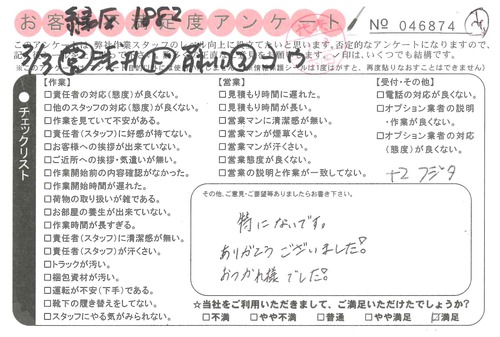 お客様不満足度アンケート
緑区 1882
No 046874
このアンケートは、弊社作業スタッフのレベル向上に役立てたいと思います。否定的なアンケートになりますので、
【作業】
□責任者の対応(態度)が良くない。
□他のスタッフの対応(態度)が良くない。
□作業を見ていて不安がある。
□責任者(スタッフ)に好感が持てない。
□お客様への挨拶が出来ていない。
□ご近所への挨拶・気遣いが無い。
□作業開始前の内容確認がなかった。
□作業開始時間が遅れた。
□荷物の取り扱いが雑である。
□お部屋の養生が出来ていない。
□作業時間が長すぎる。
□責任者(スタッフ)に清潔感が無い。
□責任者(スタッフ)が汗くさい。
□トラックが汚い。
□梱包資材が汚い。
□運転が不安(下手)である。
□靴下の履き替えをしてない。
□スタッフにやる気がみられない。
【営業】
□見積もりに遅れた。
□見積もり時間が長い。
□営業マンに清潔感が無い。
□営業マンが煙草くさい。
□営業マンが汗くさい。
□営業態度が良くない。
□営業の説明と作業が一致してない。
【受付・その他】
□電話の対応が良くない。
□オプション業者の説明
・作業が良くない。
□オプション業者の対応
(態度)が良くない。
フジタ
その他、ご意見・ご要望等ありましたらお書き下さい。
特にないです。
ありがとうございました!
おつかれ様でした!
☆当社をご利用いただきまして、ご満足いただけたでしょうか?
□不満 □やや不満 □普通 □やや満足 ☑満足
チェックリスト